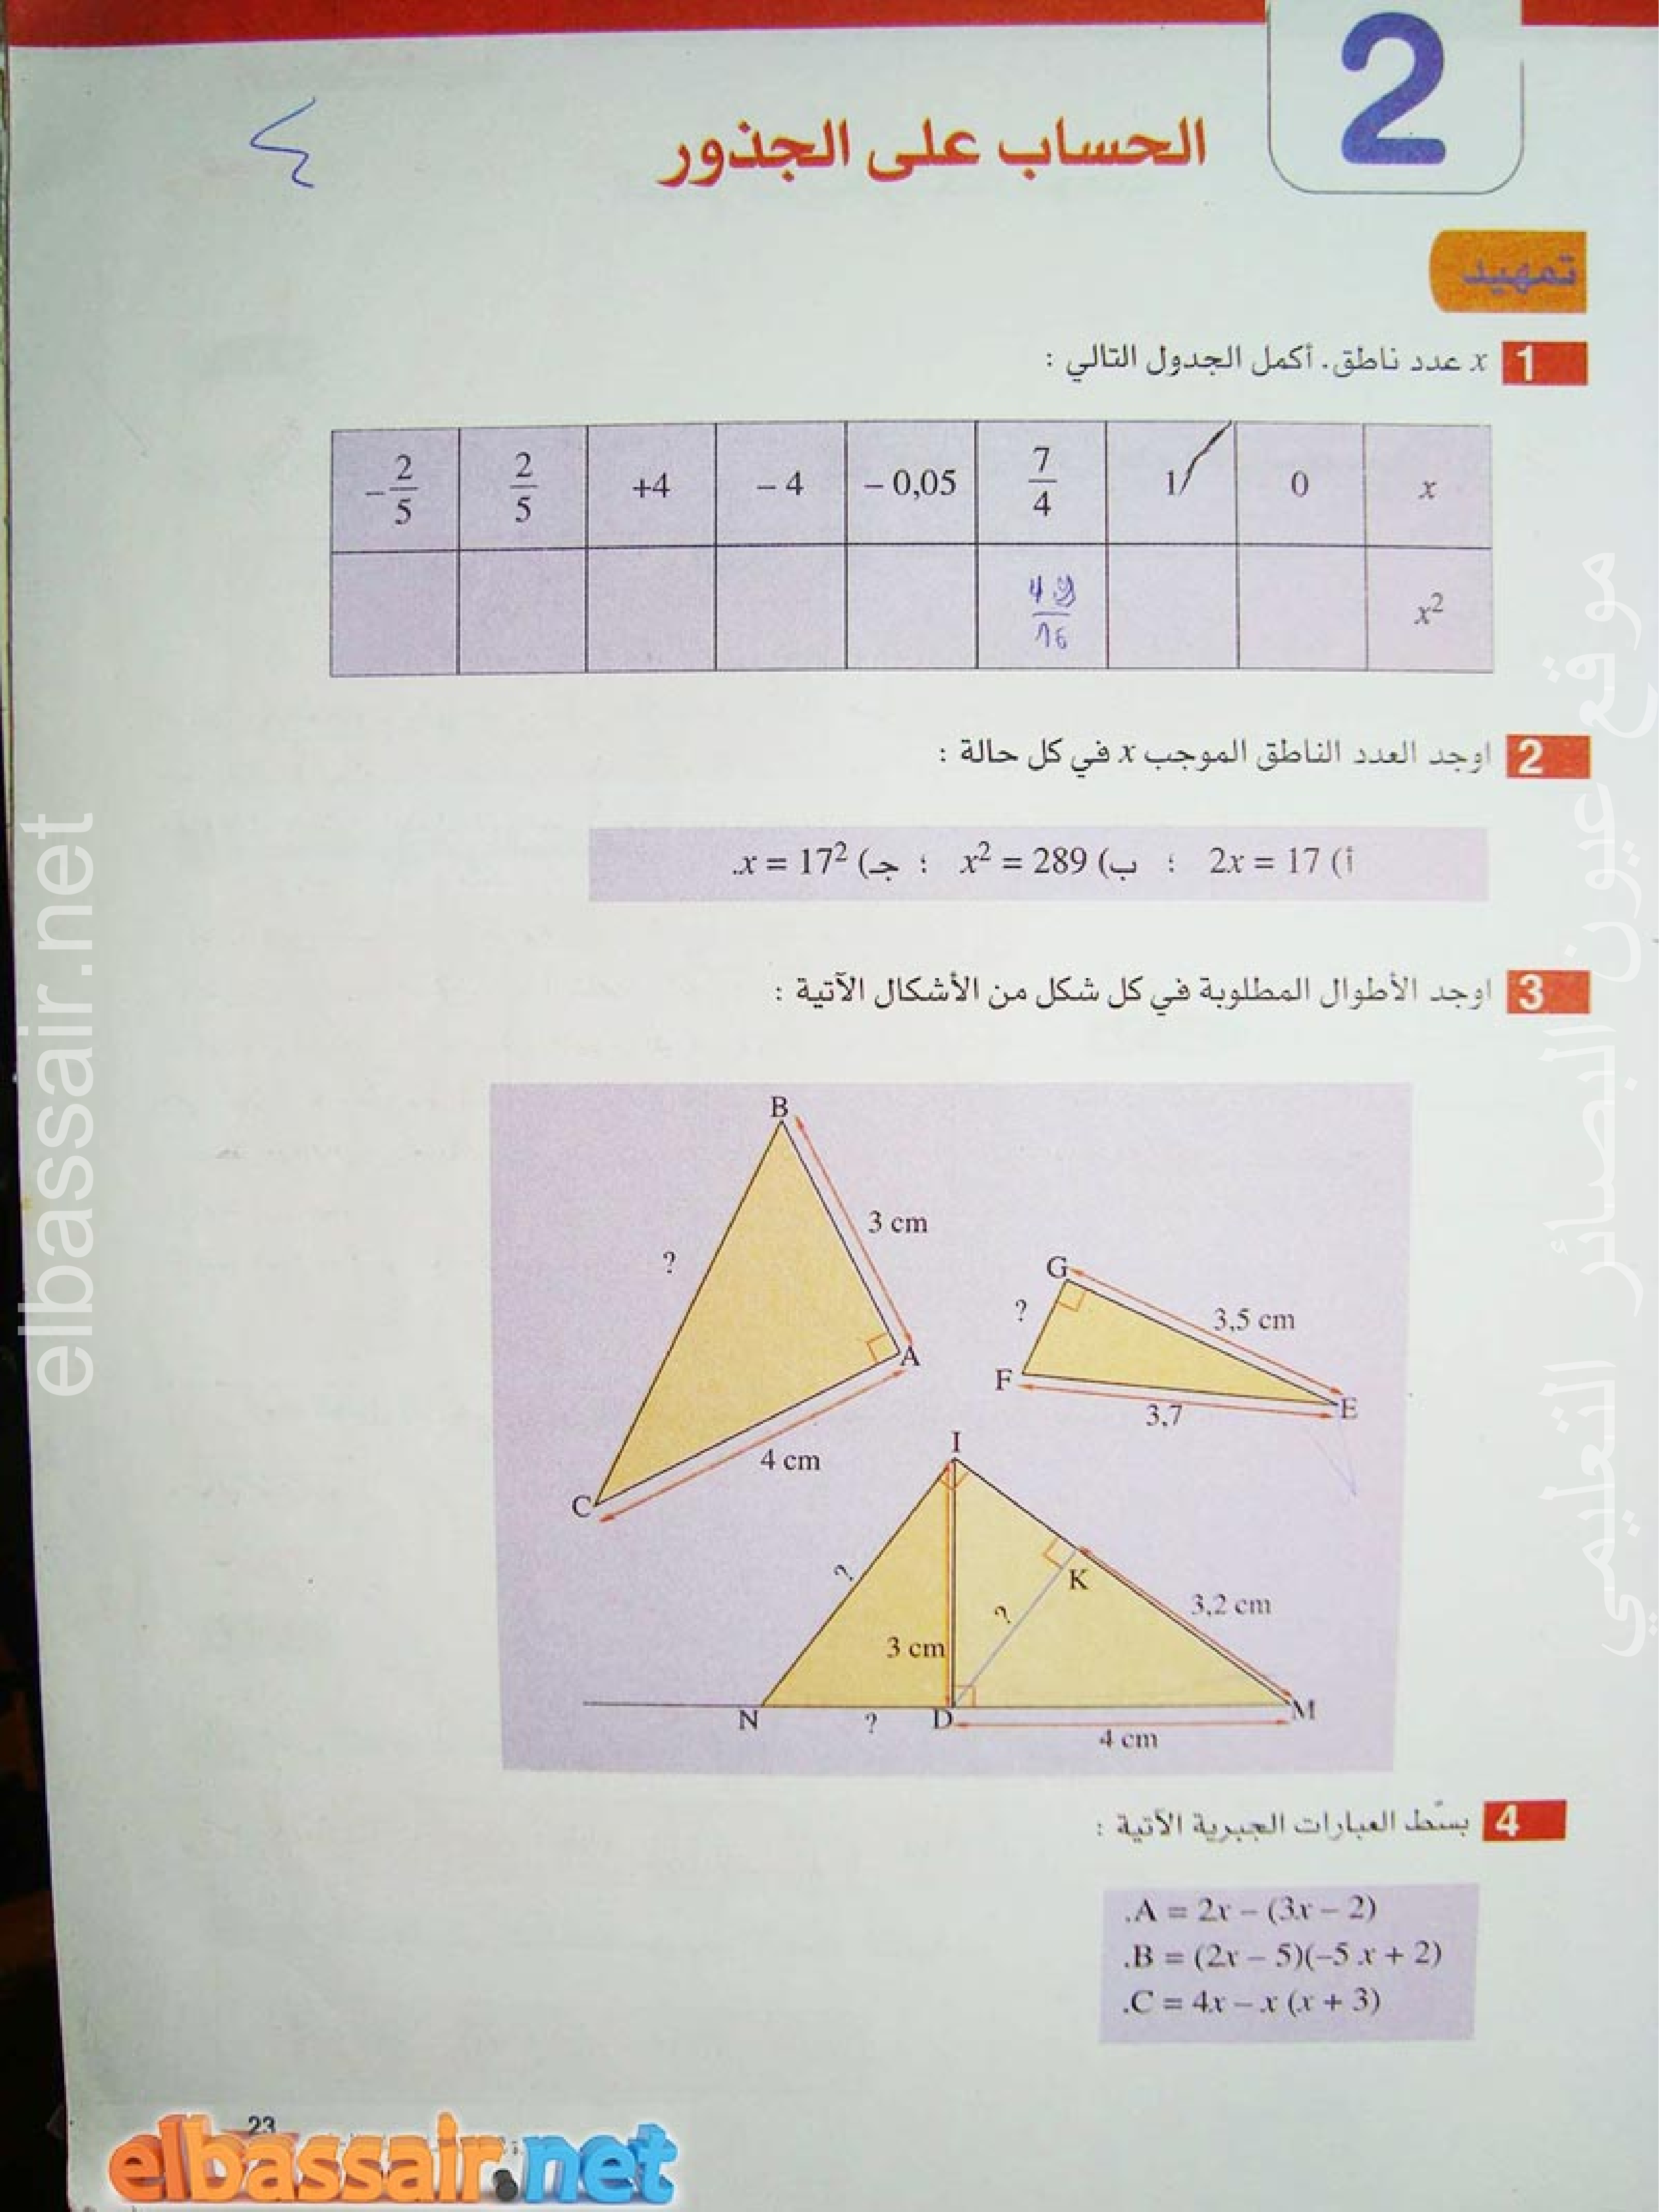 2
الحساب على الجذور
تمهيد
1 x عدد ناطق. أكمل الجدول التالي :
x 0 1 7/4 – 0,05 – 4 +4 2/5 –2/5
x² 49/16
2 اوجد العدد الناطق الموجب x في كل حالة :
أ) 2x = 17 ؛ ب) x² = 289 ؛ جـ) x = 17².
3 اوجد الأطوال المطلوبة في كل شكل من الأشكال الآتية :
B
3 cm
?
A
4 cm
C
G
?
3,5 cm
F
3,7
E
I
?
K
?
3,2 cm
3 cm
N
?
D
M
4 cm
4 بسّط العبارات الجبرية الآتية :
A = 2x – (3x – 2).
B = (2x – 5)(–5x + 2).
C = 4x – x (x + 3).
23
elbassair.net
elbassair.net
موقع عيون البصائر التعليمي